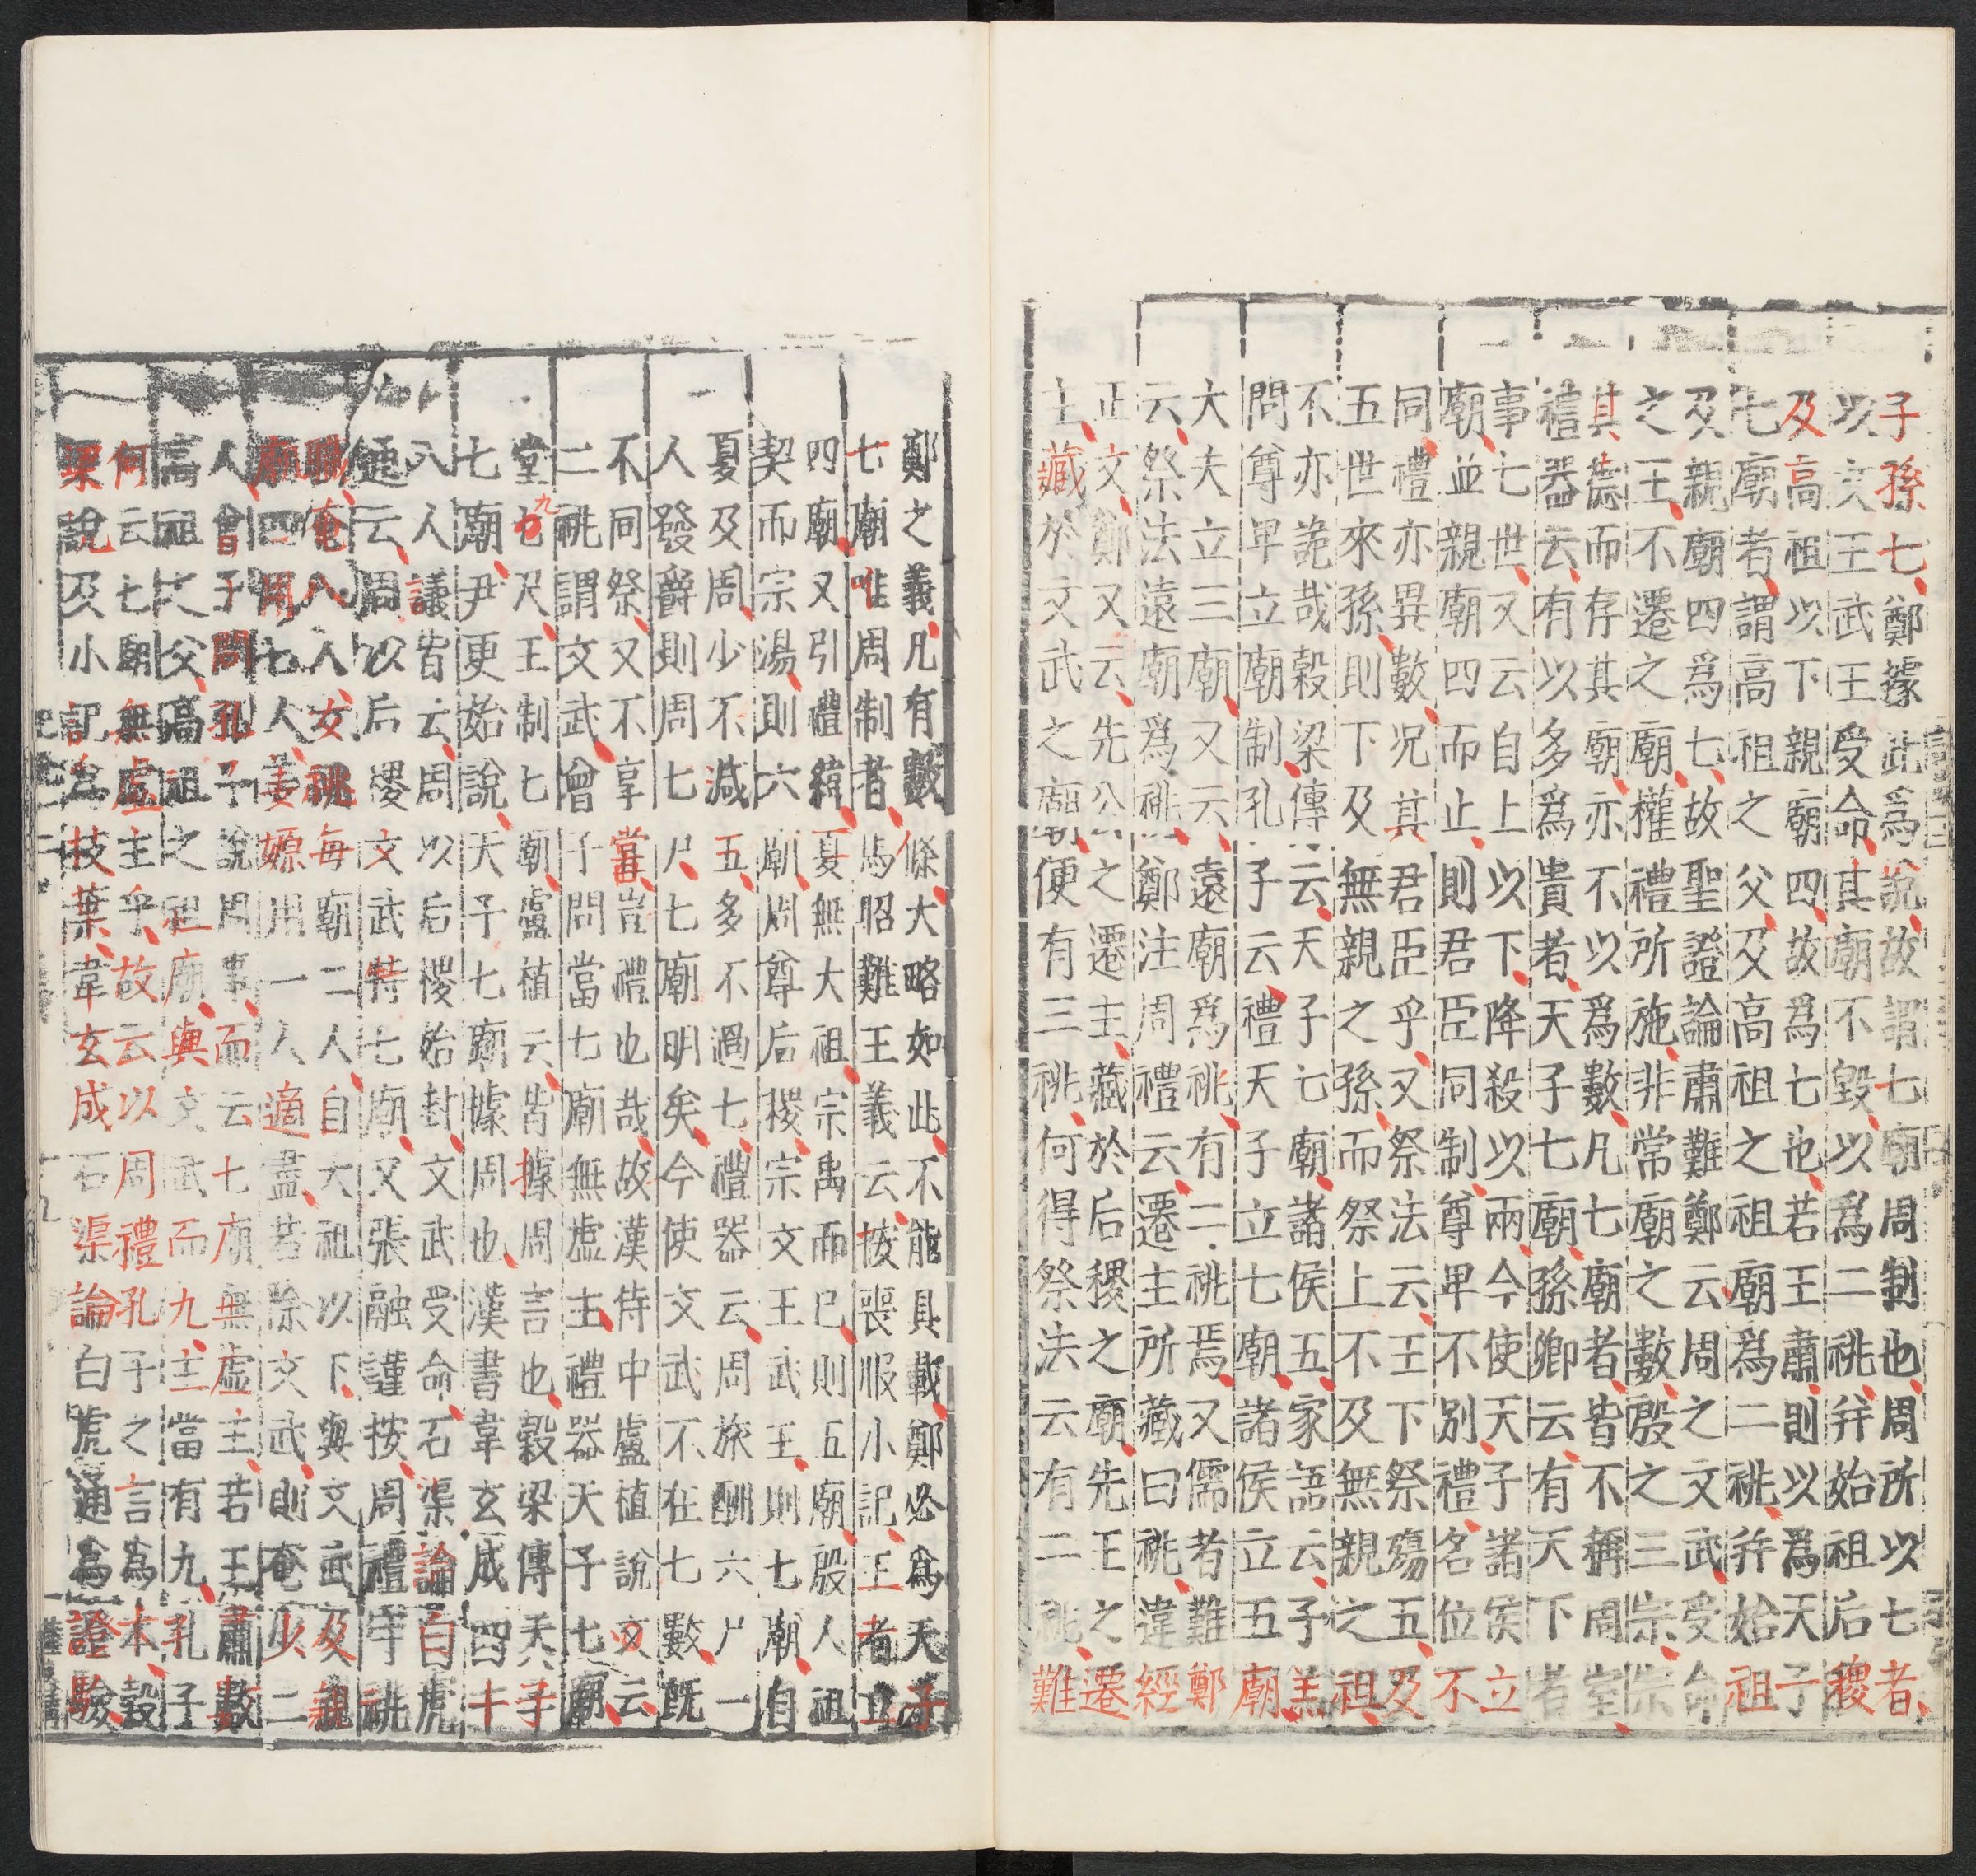 子孫七鄭據此為說故謂七廟周制也周所以七者
以文王武王受命其廟不毀以為二祧并始祖后稷
及高祖以下親廟四故為七也若王肅則以為天子
七廟者謂高祖之父及高祖之祖廟為二祧并始祖
及親廟四為七故聖證論肅難鄭云周之文武受命
之王不遷之廟權禮所施非常廟之數殷之三宗宗
其德而存其廟亦不以為數凡七廟者皆不稱周室
禮器云有以多為貴者天子七廟孫卿云有天下者
事七世又云自上以下降殺以兩今使天子諸侯立
廟並親廟四而止則君臣同制尊卑不別禮名位不
同禮亦異數況其君臣乎又祭法云王下祭殤五及
五世來孫則下及無親之孫而祭上不及無親之祖
不亦詭哉穀梁傳云天子七廟諸侯五家語云子羔
問尊卑立廟制孔子云禮天子立七廟諸侯立五廟
大夫立三廟又云遠廟為祧有二祧焉又儒者難鄭
云祭法遠廟為祧鄭注周禮云遷主所藏曰祧違經
正文鄭又云先公之遷主藏於后稷之廟先王之遷
主藏於文武之廟便有三祧何得祭法云有二祧難
鄭之義凡有數條大略如此不能具載鄭必為天子
七廟唯周制者馬昭難王義云按喪服小記王者立
四廟又引禮緯夏無大祖宗禹而已則五廟殷人祖
契而宗湯則六廟周尊后稷宗文王武王則七廟自
夏及周少不減五多不過七禮器云周旅酬六尸一
人發爵則周七尸七廟明矣今使文武不在七數既
不同祭又不享嘗豈禮也哉故漢侍中盧植說文云
二祧謂文武曾子問當七廟無虛主禮器天子七廟
堂九尺王制七廟盧植云皆據周言也穀梁傳天子
七廟尹更始說天子七廟據周也漢書韋玄成四十
八人議皆云周以后稷始封文武受命石渠論白虎
通云周以后稷文武特七廟又張融謹按周禮守祧
職奄八人女祧每廟二人自大祖以下與文武及親
廟四用七人姜嫄用一人適盡若除文武則奄少二
人曾子問孔子說周事而云七廟無虛主若王肅數
高祖之父高祖之祖廟與文武而九主當有九孔子
何云七廟無虛主乎故云以周禮孔子之言為本穀
梁說及小記為枝葉韋玄成石渠論白虎通為證驗